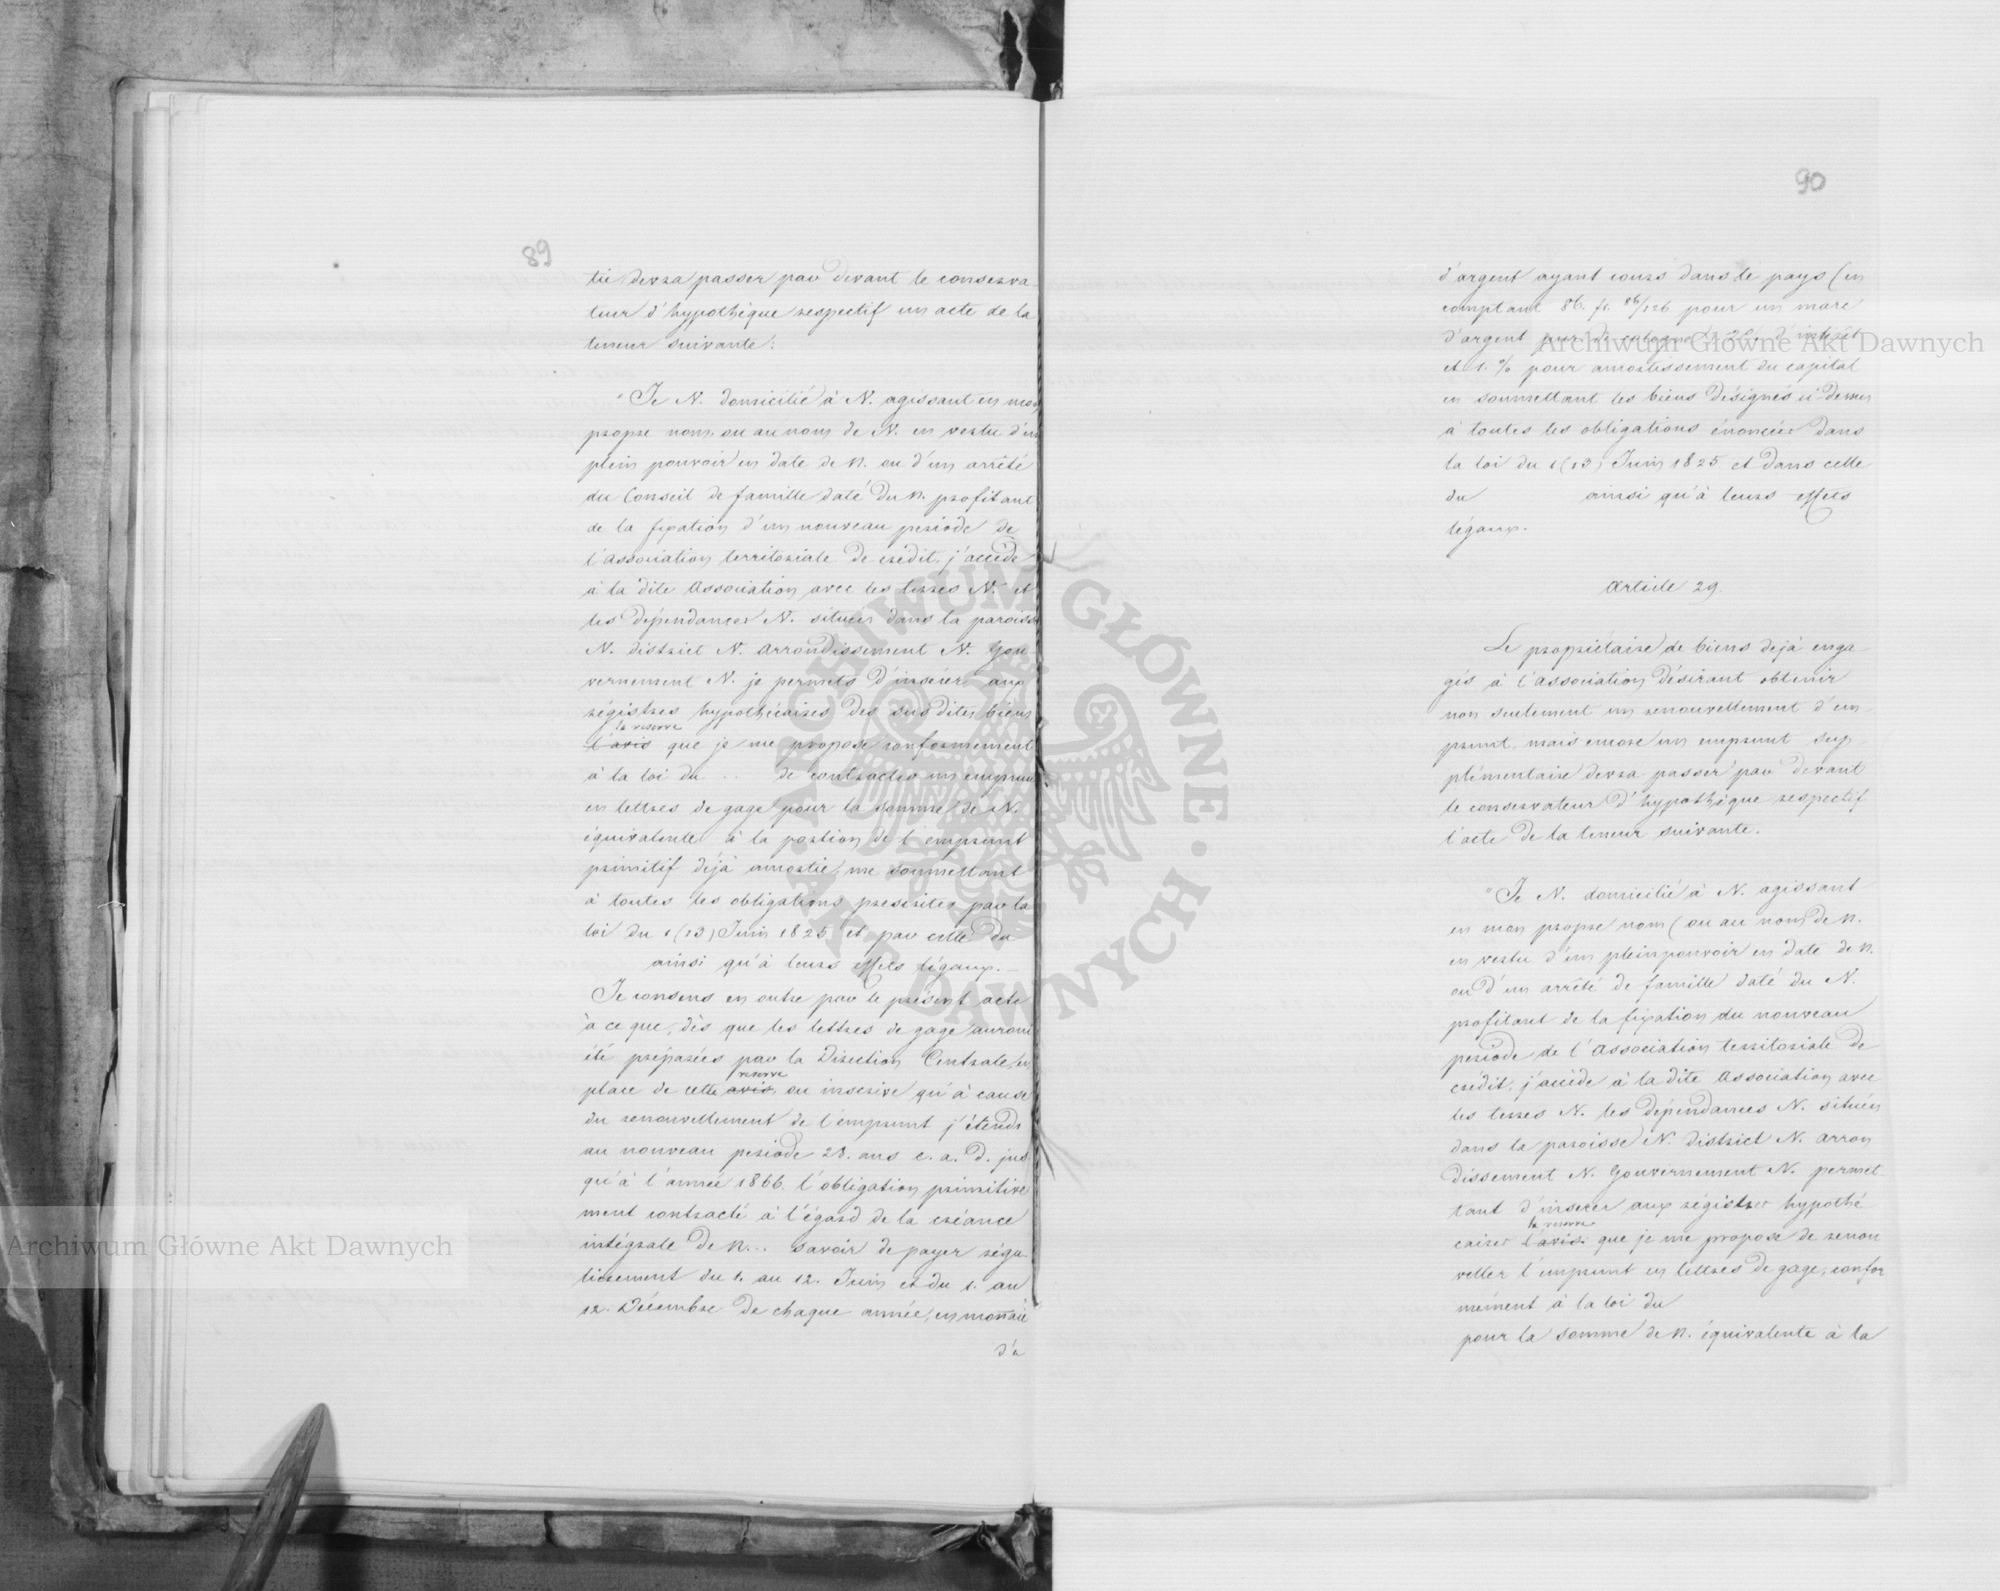 89
tie devra passer par devant le conserva-
teur d'hypothèque respectif un acte de la
teneur suivante:
"Je N. domicilié à N. agissant en mon
propre nom, ou au nom de N. en vertu d'un
plein pouvoir en date de N. ou d'un arrêté
du Conseil de famille daté du N. profitant
de la fixation d'un nouveau periode de
l'Association territoriale de crédit, j'accède
à la dite Association avec les terres N. et
les dépendances N. situées dans la paroisse
N. district N. Arrondissement N. Gou-
vernement N. je permets d'insérer aux
régistres hypothécaires des susdites biens
la reserve
l'avis que je me propose conformement
à la loi du ... de contracter un emprunt
en lettres de gage pour la somme de N.
équivalente à la portion de l'emprunt
primitif déjà amortie, me soumettant
à toutes les obligations prescrites par la
loi du 1 (13) Juin 1825 et par celle du
ainsi qu'à leurs effets légaux.
Je consens en outre par le présent acte
à ce que, dès que les lettres de gage auront
été préparées par la Direction Centrale, en
reserve
place de cette avis, on inscrive qu'à cause
du renouvellement de l'emprunt j'étends
au nouveau periode 28. ans c. a. d. jus
qu'à l'année 1866. l'obligation primitive
ment contracté à l'égard de la créance
intégrale de N... savoir de payer régu-
lièrement du 1. au 12. Juin et du 1. au
12. Décembre de chaque année, en monnaie
d'a
90
d'argent ayant cours dans le pays (en
comptant 86. fl. 86/126 pour un marc
d'argent pur de cologne) d'intérêt
et 1. % pour amortissement du capital
en soumettant les biens désignés ci dessus
à toutes les obligations énoncées dans
la loi du 1 (13) Juin 1825 et dans celle
du ainsi qu'à leurs effets
légaux.
Article 29.
Le propriétaire de biens déjà enga-
gés à l'Association désirant obtenir
non seulement un renouvellement d'em-
prunt, mais encore un emprunt sup-
plémentaire devra passer par devant
le conservateur d'hypothèque respectif
l'acte de la teneur suivante.
"Je N. domicilié à N. agissant
en mon propre nom (ou au nom de N.
en vertu d'un pleinpouvoir en date de N.
ou d'un arrêté de famille daté du N.
profitant de la fixation du nouveau
periode de l'Association territoriale de
crédit, j'accède à la dite Association avec
les terres N. les dépendances N. situées
dans la paroisse N. district N. Arron
dissement N. Gouvernement N. permet
tant d'inserer aux régistres hypothé
la reserve
caires l'avis que je me propose de renou
veller l'emprunt en lettres de gage, confor
mément à la loi du
pour la somme de N. équivalente à la
Archiwum Główne Akt Dawnych
Archiwum Główne Akt Dawnych
ARCHIWUM GŁÓWNE · AKT DAWNYCH ·